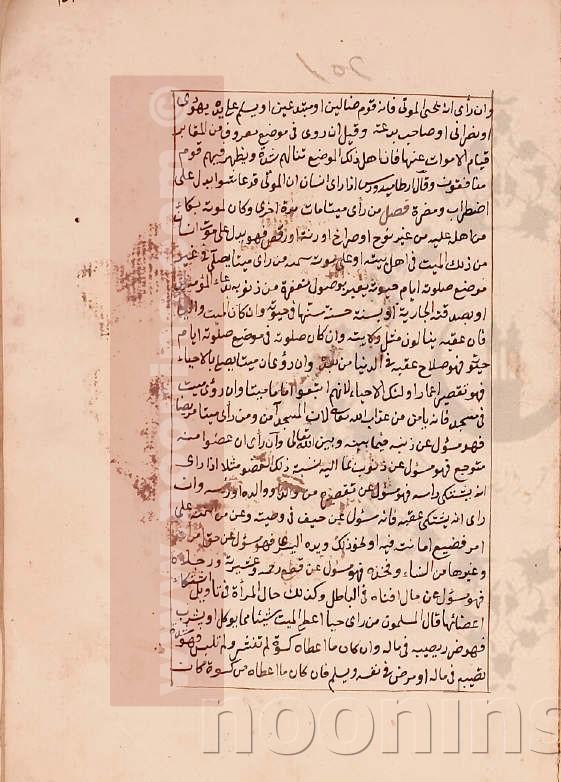 وان رأى انه يحيى الموتى فانه قوم ضالين او مبتدعين او يسلم على يده يهودى
او نصرانى او صاحب بدعته وقيل ان روى فى موضع معروف من المقابر
قيام الاموات عنها فان اهل ذلك الموضع تنالهم شدة ويظهر فيهم قوم
منافقون وقال ارطاميدورس اذا راى انسان ان الموتى قد عاشوا يدل على
اضطراب ومضرة فصل من رأى ميتا مات موتة اخرى وكان لموته بكاء
من اهل عليه من غير نوح او صراخ او رنة او رقص فهو يدل على موت انسان
من ذلك الميت فى اهل بيته او على موت سميه من رأى ميتا يصلى فى غير
موضع صلوته ايام حيوته يعبر بوصول منفعة من ذنوبه بدعاء المؤمنين
او بصدقته الجارية او بسنة حسنة سنها فى حيوته وان كان الميت واليا
فان عقبه ينالون مثل ولايته وان كان صلوته فى موضع صلوته ايام
حيوته فهو صلاح عقبه فى الدنيا من بعده وان روى ان ميتا يصلى بالاحياء
فهو تقصير اعمار اولئك الاحياء لانهم اتبعوا اماما ميتا وان روى ميت
فى مسجد فانه يأمن من عذاب الله تعالى لان المسجد آمن ومن رأى ميتا مريضا
فهو مسؤل عن ذنبه فيما بينه وبين الله تعالى وان رأى ان عضوا منه
متوجع فهو مسؤل عن ذنوب بما اليه نسبة ذلك العضو مثلا اذا راى
انه يشتكى راسه فهو مسؤل عن تقصيره من والديه او والده او رئيسه وان
راى انه يشتكى عنقه فانه مسؤل عن حيف فى وصيته وعن من امنه على
امر فضيع امانته فيه او نحو ذلك ويده اليسرى فهو مسؤل عن حق
وغيرها من النساء وفخذه فهو مسؤل عن قطع رحمه وعشيرته ورجلاه
فهو مسؤل عن مال افناه فى الباطل وكذلك حال المرأة فى تأويل اشتكاء
اعضائها قال المسلمون من راى حيا اعطى الميت شيئا مما يوكل او يشرب
فهو ضرر يصيب فى ماله وان كان ما اعطاه كسوة لم تنشر ولم تلبس فهو
نصيبه فى ماله او مرض فى نفسه ويسلم فان كان ما اعطاه من كسوة كانت
noonins